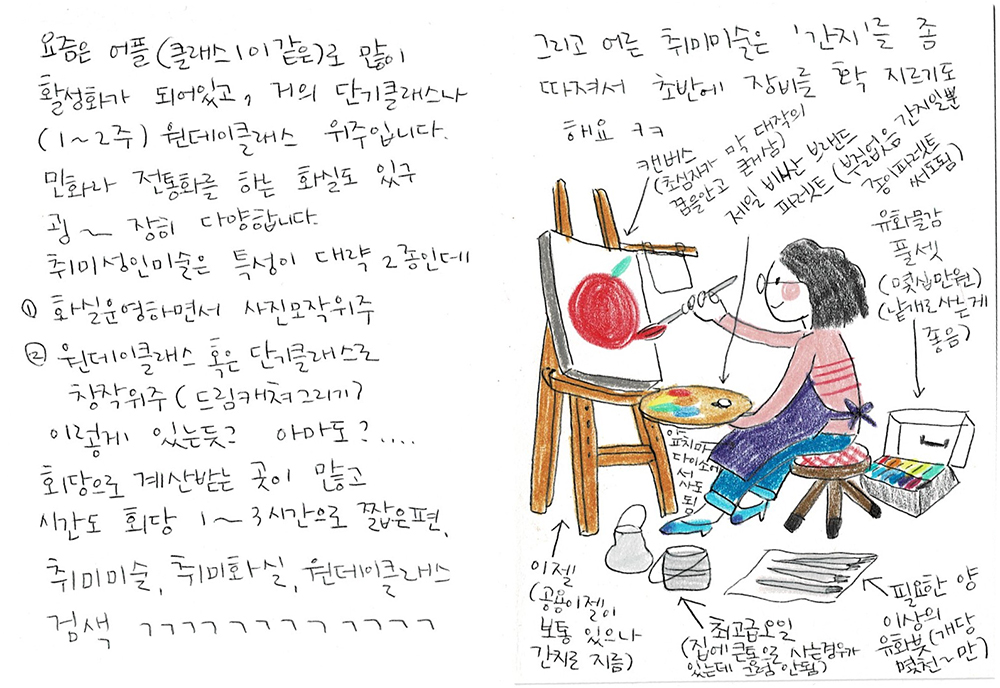 요즘은 어플(클래스101 이 같은)로 많이
활성화가 되어있고, 거의 단기클래스나
(1~2주) 원데이클래스 위주입니다.
민화나 전통화를 하는 화실도 있구
굉~장히 다양합니다.
취미성인미술은 특성이 대략 2종인데
① 화실운영하면서 사진모작위주
② 원데이클래스 혹은 단기클래스로
창작위주 (드림캐쳐그리기?
이렇게 있는듯? 아마도?....
회당으로 계산받는 곳이 많고
시간도 회당 1~3시간으로 짧은편.
취미미술, 취미화실, 원데이클래스
검색 ㄱㄱㄱㄱㄱㄱㄱㄱㄱㄱㄱ
그리고 어른 취미미술은 '간지'를 좀
따져서 초반에 장비를 확 지르기도
해요 ㅋㅋ
캔버스
(초심자가 막 대작의
꿈을안고 큰거삼)
제일 비싼 브랜드
파레트 (부질없음 간지일뿐
종이파레트
써도됨)
유화물감
풀셋
(몇십만원)
(낱개로 사는게
좋음)
앞
표치마
다이소에
서 사도
됨
이젤
(공용이젤이
보통 있으나
간지로 지름)
최고급오일
(집에 큰통으로 사는경우가
있는데 그럼 안됨)
필요한 양
이상의
유화붓(개당
몇천~만)